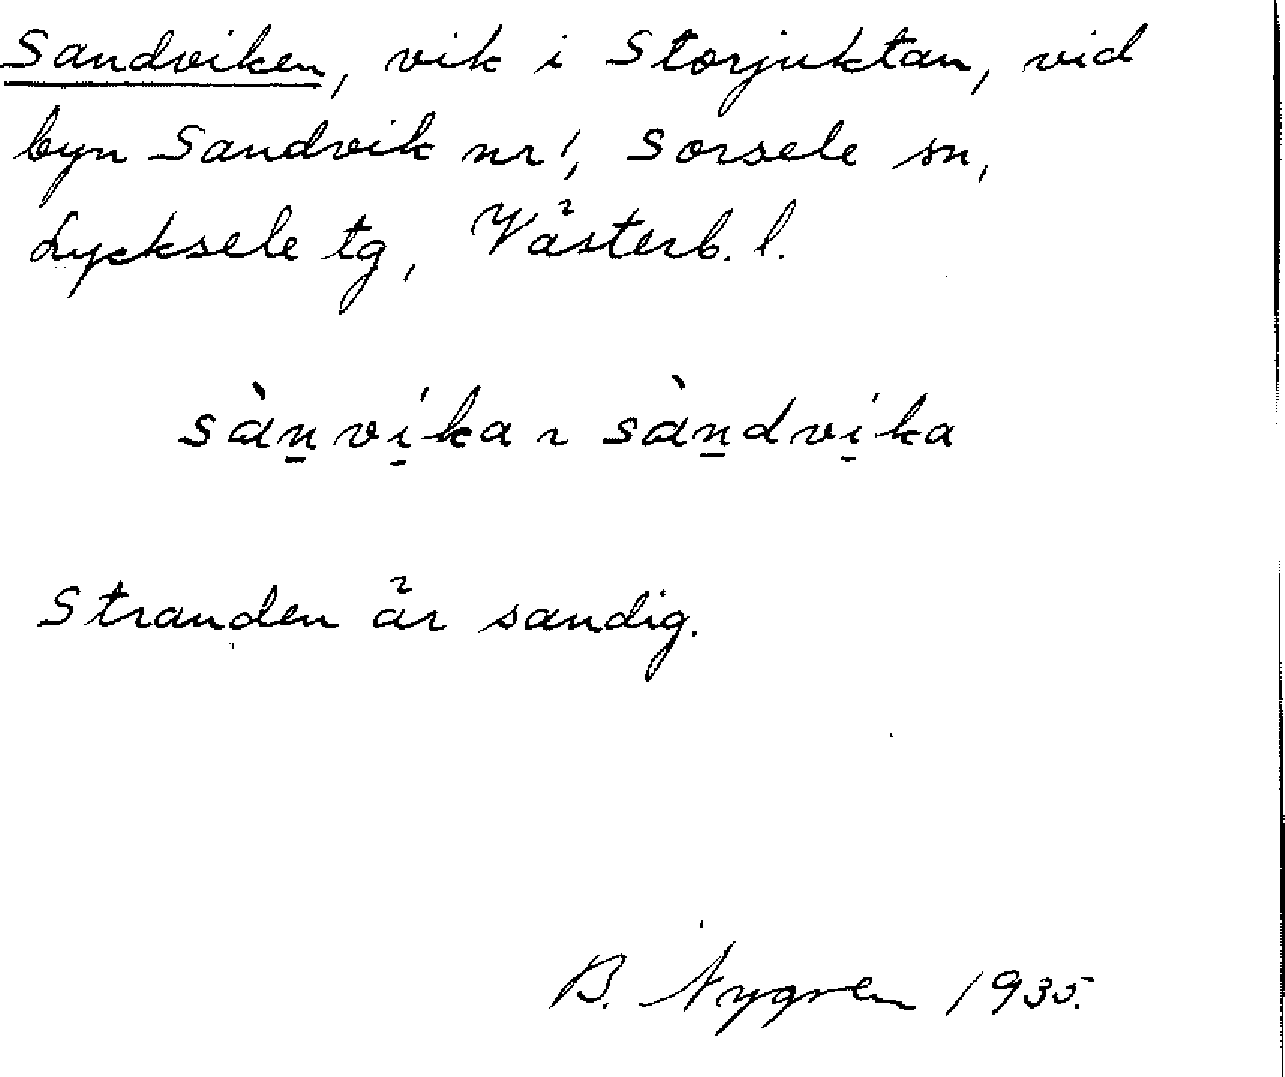 Sandviken, vik i Storjuktan, vid
byn Sandvik nr 1, Sorsele sn,
Lycksele tg, Västerb. l.
sàn̠vi̠ka ~ sàn̠dvi̠ka
Stranden är sandig.
B. Nygren 1935.